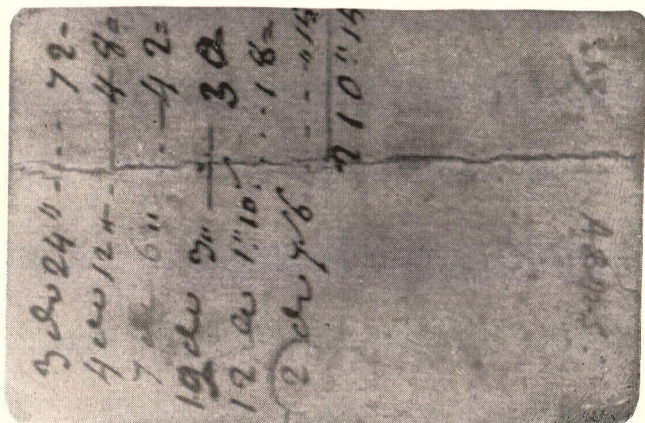 3 de 24" --- 72=
4 de 12" --- 48=
7 de 6" --- 42=
10 de 3" — 30=
12 de 1"10 --- 18=
2 de 7/6 --- "15
210"15